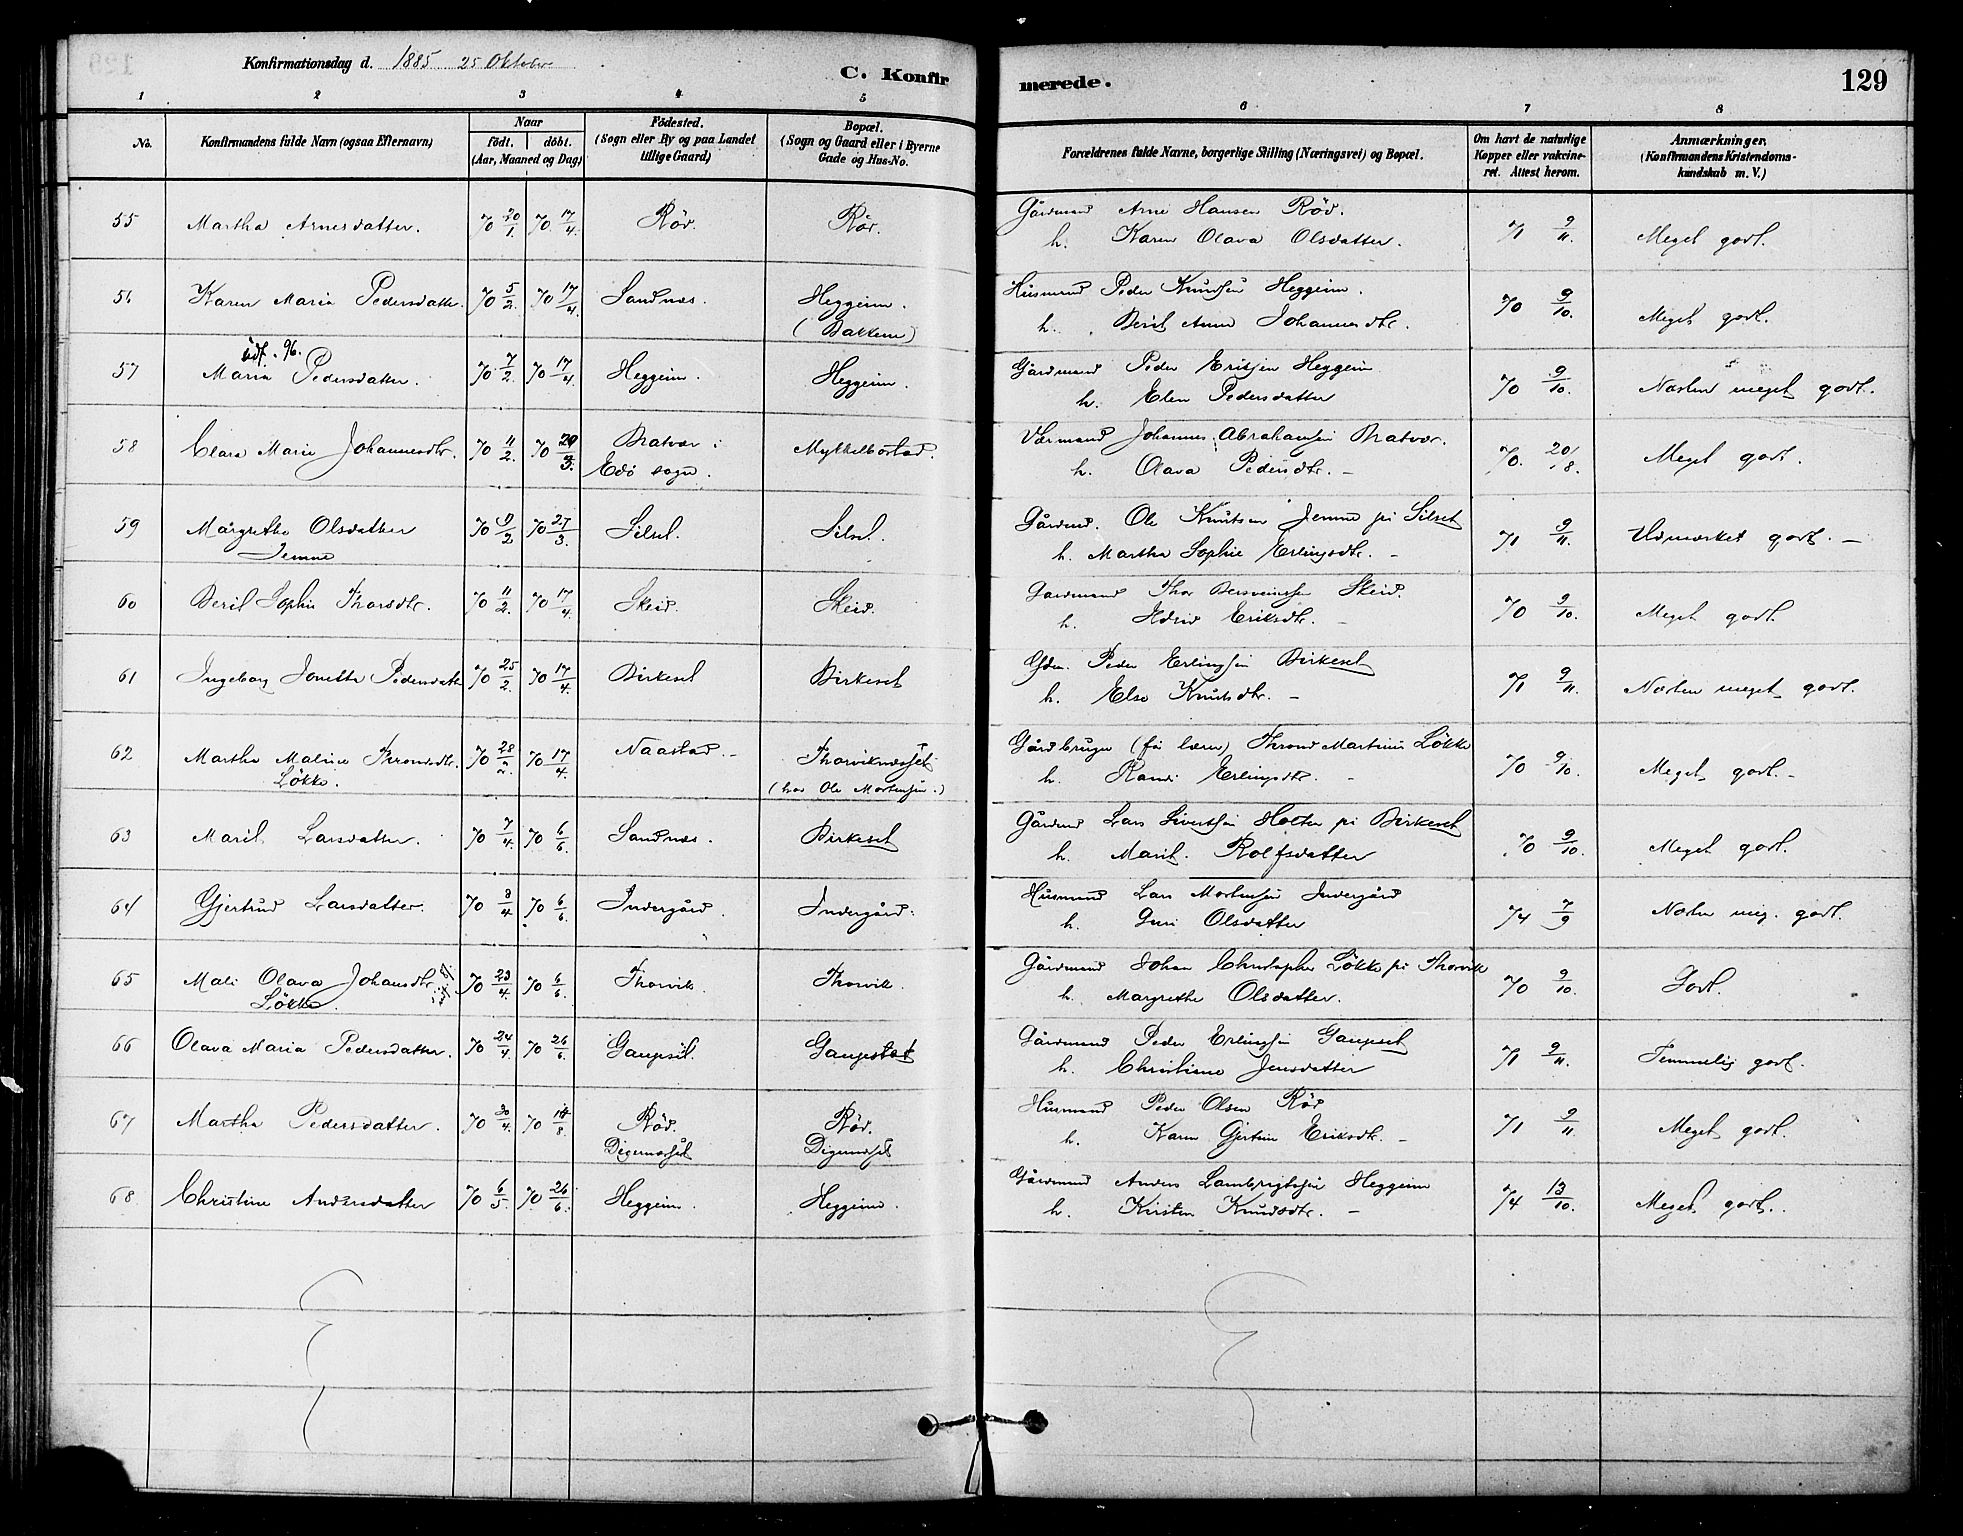 Konfirmationsdag d. 1885 25 Oktober
C. Konfirmerede.
129
1 2 3 4 5 6 7 8
No.
Konfirmandens fulde Navn (ogsaa Efternavn)
Naar
födt. döbt.
(Aar, Maaned og Dag)
Födested.
(Sogn eller By og paa Landet
tillige Gaard)
Bopæl.
(Sogn og Gaard eller i Byerne
Gade og Hus-No.
Forældrenes fulde Navne, borgerlige Stilling (Næringsvei) og Bopæl.
Om havt de naturlige
Kopper eller vakcine-
ret. Attest herom.
Anmærkninger.
(Konfirmandens Kristendoms-
kundskab m. V.)
55 Martha Arnesdatter. 70 20/1. 70 17/4. Röd. Röd. Gårdmand Arne Hansen Röd. 71 9/11. Meget godt.
h. Karen Olava Olsdatter.
56 Karen Maria Pedersdatter. 70 5/2. 70 17/4. Sandnæs. Heggeim. Husmand Peder Knudsen Heggeim. 70 9/10. Meget godt.
(Bakkene) h. Berit Anne Johannesdtr.
udf. 96.
57 Maria Pedersdatter. 70 7/2. 70 17/4. Heggeim. Heggeim. Gårdmand Peder Eriksen Heggeim 70 9/10. Næsten meget godt.
h. Elen Pedersdatter
58 Clara Marie Johannesdtr. 70 11/2. 70 20/3. Bratvær i Mykkelbostad. Værmand Johannes Abrahamsen Bratvær. 70. 20/8. Meget godt.
Edö sogn. h. Olava Pedersdtr. –
59 Margrethe Olsdatter 70 11/2 70 27/3. Silset. Silset. Gårdmd. Ole Knutsen Jemne på Silset 71 9/11. Udmærket godt. –
Jemne h. Martha Sophie Erlingsdtr. –
60 Beril Sophie Thorsdtr. 70 11/2. 70 17/4. Skeid. Skeid. Gardmand Thor Bersveinsen Skeid. 70 9/10. Meget godt.
h. Eriksdtr. –
61 Ingeborg Jonetta Pedersdatt. 70 25/2. 70 17/4. Birkeset Birkeset Gdm. Peder Erlingsen Birkeset 71 9/11. Næsten meget godt.
h. Else Knutsdtr. –
62 Martha Malene Thronsdtr. 70 28/2. 70 17/4. Naastad – Thorviknæsset Gårdbruger (fö læren) Thrond Martinus Lökke 70 9/10. Meget godt. –
Lökke. (hos Ole Mortensen.) h. Randi Erlingsdtr. –
63 Marit Larsdatter. 70 7/4. 70 6/6. Sandnæs. Birkeset Gårdmd Lars Sivertsen Holten på Birkeset 70 9/10. Meget godt.
h. Marit. Rolfsdatter
64 Gjertrud Larsdatter. 70 8/4 70 6/6. Indergård. Indergård. Husmand Lars Mortensen Indergård 74 7/9 Næsten meg. godt.
h. Guri Olsdatter
65 Mali Olava Johansdtr. 70 23/4. 70 6/6. Thorvik Thorvik. Gårdmand Johan Christopher Lökke på Thorvik 70 9/10. Godt.
Lökke. h. Margrethe Olsdatter.
66 Olava Maria Pedersdatter. 70 24/4 70 26/6. Gaupset. Gaupset Gårdmand Peder Erlingsen Gaupset 71 9/11. Temmelig godt.
h. Christiane Jensdatter
67 Martha Pedersdatter. 70 30/4. 70 14/8. Röd. Röd. Husmand Peder Olsen Röd 71 9/11. Meget godt.
Digernæset Digernæset h. Karen Gjertine Eriksdtr. –
68 Christine Andersdatter 70 6/5. 70 26/6. Heggeim. Heggeim. Gårdmand Anders Lambrigtsen Heggeim 74 13/10. Meget godt.
h. Kirsten Knudsdtr. –